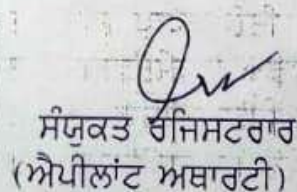 ਸੰਯੁਕਤ ਰਜਿਸਟਰਾਰ
(ਐਪੀਲਾਂਟ ਅਥਾਰਟੀ)